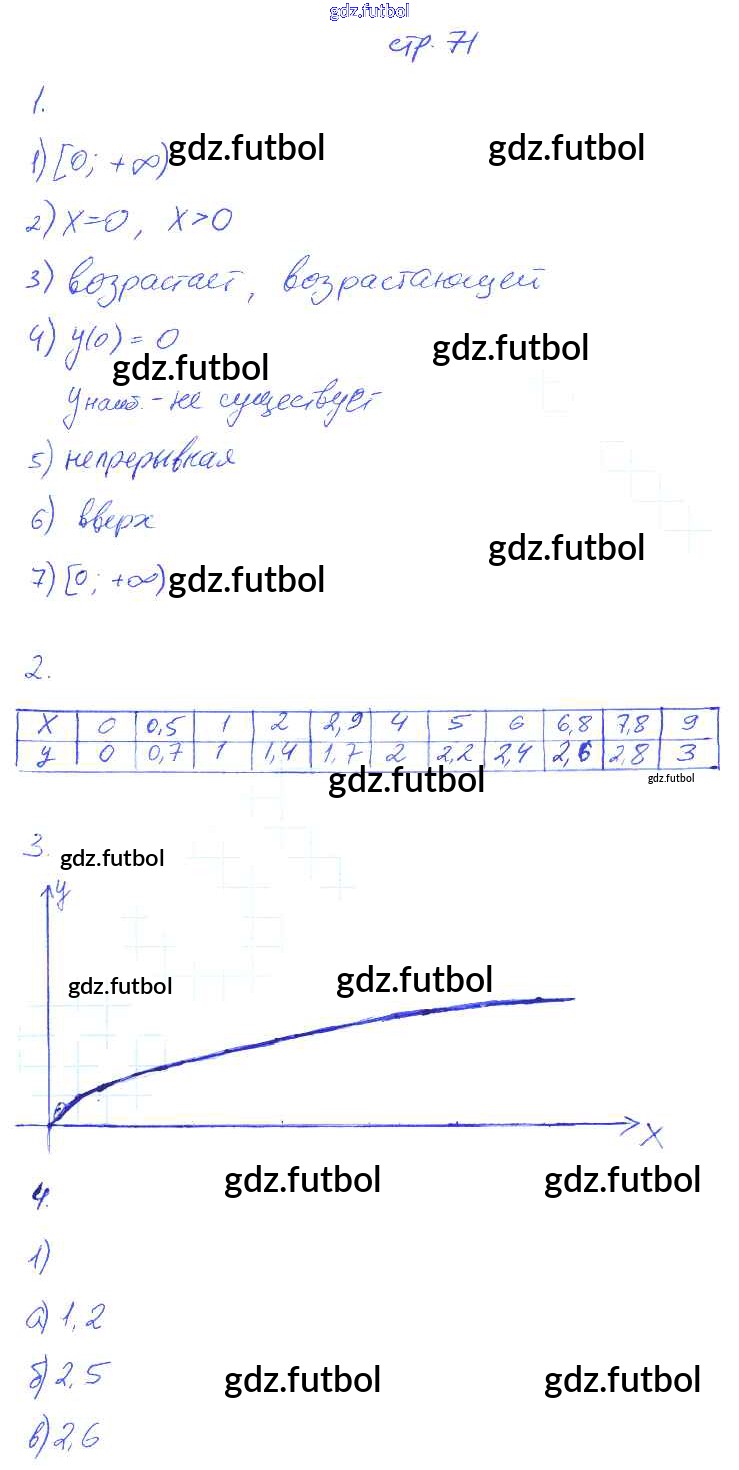 gdz.futbol
стр. 71
1.
1) [0; +∞) gdz.futbol gdz.futbol
2) x=0, x>0
3) возрастает, возрастающей
4) y(0) = 0
gdz.futbol gdz.futbol
yнаиб. - не существует
5) непрерывная
6) вверх
gdz.futbol
7) [0; +∞) gdz.futbol
2.
x 0 0,5 1 2 2,9 4 5 6 6,8 7,8 9
y 0 0,7 1 1,4 1,7 2 2,2 2,4 2,6 2,8 3
gdz.futbol gdz.futbol
3. gdz.futbol
y
gdz.futbol gdz.futbol
x
gdz.futbol gdz.futbol
4.
1)
а) 1,2
б) 2,5 gdz.futbol gdz.futbol
в) 2,6